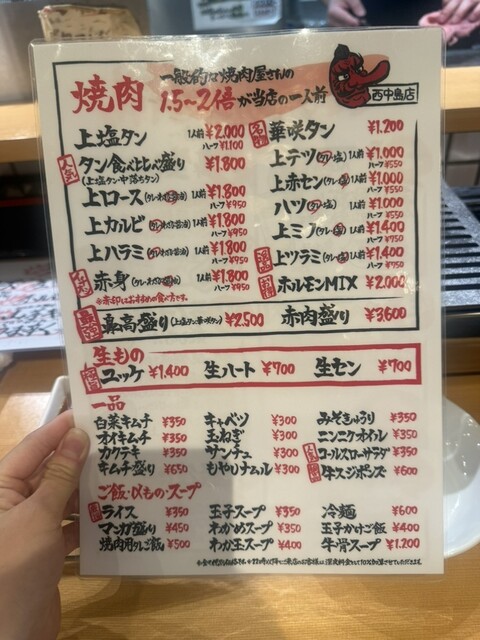 一般的な焼肉屋さんの
焼肉 1.5〜2倍が当店の一人前
西中島店
上塩タン 1人前 ¥2,000
ハーフ ¥1,100
人気 タン食べ比べ盛り ¥1,800
(上塩タン・中落ちタン)
上ロース 1人前 ¥1,800
ハーフ ¥950
上カルビ 1人前 ¥1,800
ハーフ ¥950
上ハラミ 1人前 ¥1,800
ハーフ ¥950
赤身 1人前 ¥1,800
ハーフ ¥950
※赤印はおすすめの食べ方です。
名物 華咲タン ¥1,200
上テツ (タレ・塩) 1人前 ¥1,000
ハーフ ¥550
上赤セン (タレ・塩) 1人前 ¥1,000
ハーフ ¥550
ハツ (タレ・塩) 1人前 ¥1,000
ハーフ ¥550
上ミノ (タレ・塩) 1人前 ¥1,400
ハーフ ¥750
上ツラミ (タレ・塩) 1人前 ¥1,400
ハーフ ¥750
ホルモンMIX ¥2,000
最高盛り (上塩タン・華咲タン) ¥2,500 赤肉盛り ¥3,600
生もの
ユッケ ¥1,400 生ハート ¥700 生セン ¥700
一品
白菜キムチ ¥350
オイキムチ ¥350
カクテキ ¥350
キムチ盛り ¥650
キャベツ ¥300
玉ねぎ ¥300
サンチュ ¥300
もやしナムル ¥300
みそきゅうり ¥350
ニンニクオイル ¥350
人気 コールスローサラダ ¥350
牛スジポンズ ¥600
ご飯・〆もの・スープ
ライス ¥350
マンガ盛り ¥450
焼肉用タレご飯 ¥500
玉子スープ ¥350
わかめスープ ¥350
わか玉スープ ¥400
冷麺 ¥600
玉子かけご飯 ¥400
牛骨スープ ¥1,200